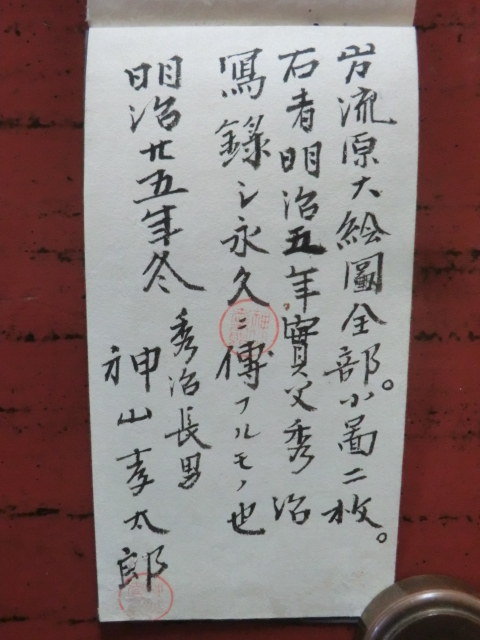 岩流原大絵圖全部。小啚二枚。
右者明治五年實父秀治
冩録シ永久ニ傳フルモノ也
明治廿五年冬
秀治長男
神山孝太郎